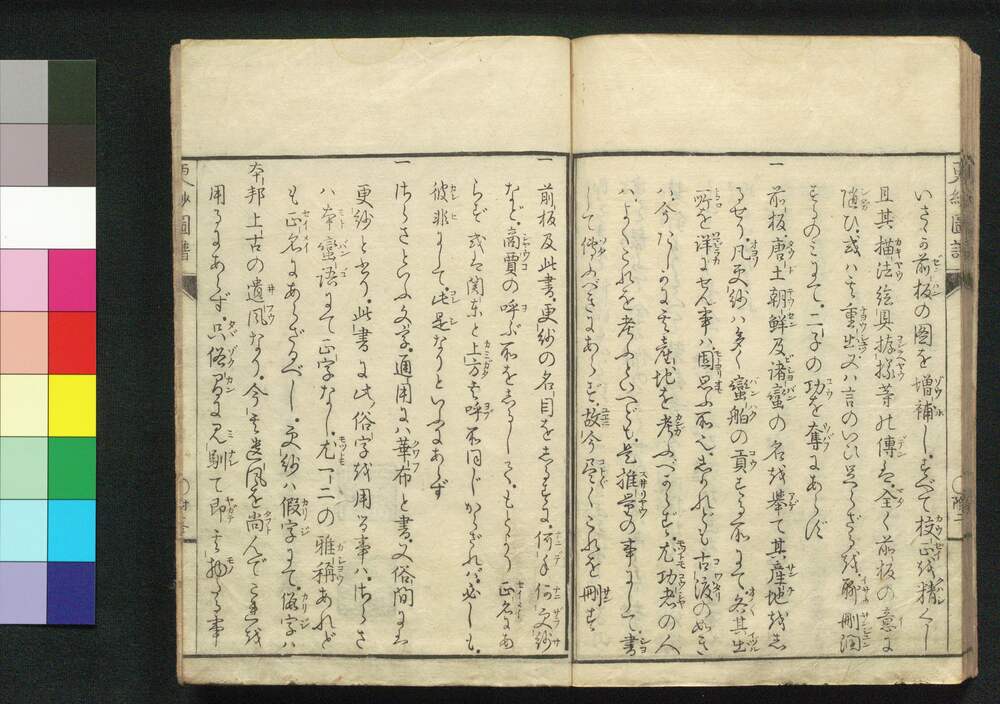 いさゝか前板の図を増補し。すべて校正を精くし
且其描法絵具拵様等の傳は。全く前板の意に
随ひ。或ハ其重出又ハ言のいひ足らざるを。聊刪潤
するのミにて。二子の功を奪にあらず
一 前板。唐土朝鮮及諸蠻の名を挙て其産地を志
るせり。凡更紗ハ多く蠻舶の貢する所にて。各其出
所を詳にせん事ハ。固思ふ所也。しかれども古渡のめき
ハ。今たしかに其産地を考ふべからず。尤功者の人
ハ。よくこれを考ふといへども。是推量の事にして書
して傳ふべきにあらず。故今尽くこれを刪す
一 前板及此書。更紗の名目をしるすに。何手何更紗
など。商賈の呼ぶ所をしるして。もとより正名にあ
らず。或は関東と上方は呼所同じからざれバ。必しも。
彼非にして。此是なりといふにあらず
一 さらさといふ文字。通用にハ華布と書。又俗間には
更紗と書り。此書に此俗字を用る事ハ。さらさ
ハ本蠻語にて正字なし。尤一二の雅称あれど
も正名にあらざるべし。更紗ハ假字にて。俗字ハ
本邦上古の遺風なり。今其遺風を尚んでこれを
用るにあらず。只俗間に見馴て即其物たる事
更紗圖譜
〇附二
更紗圖譜
〇附三